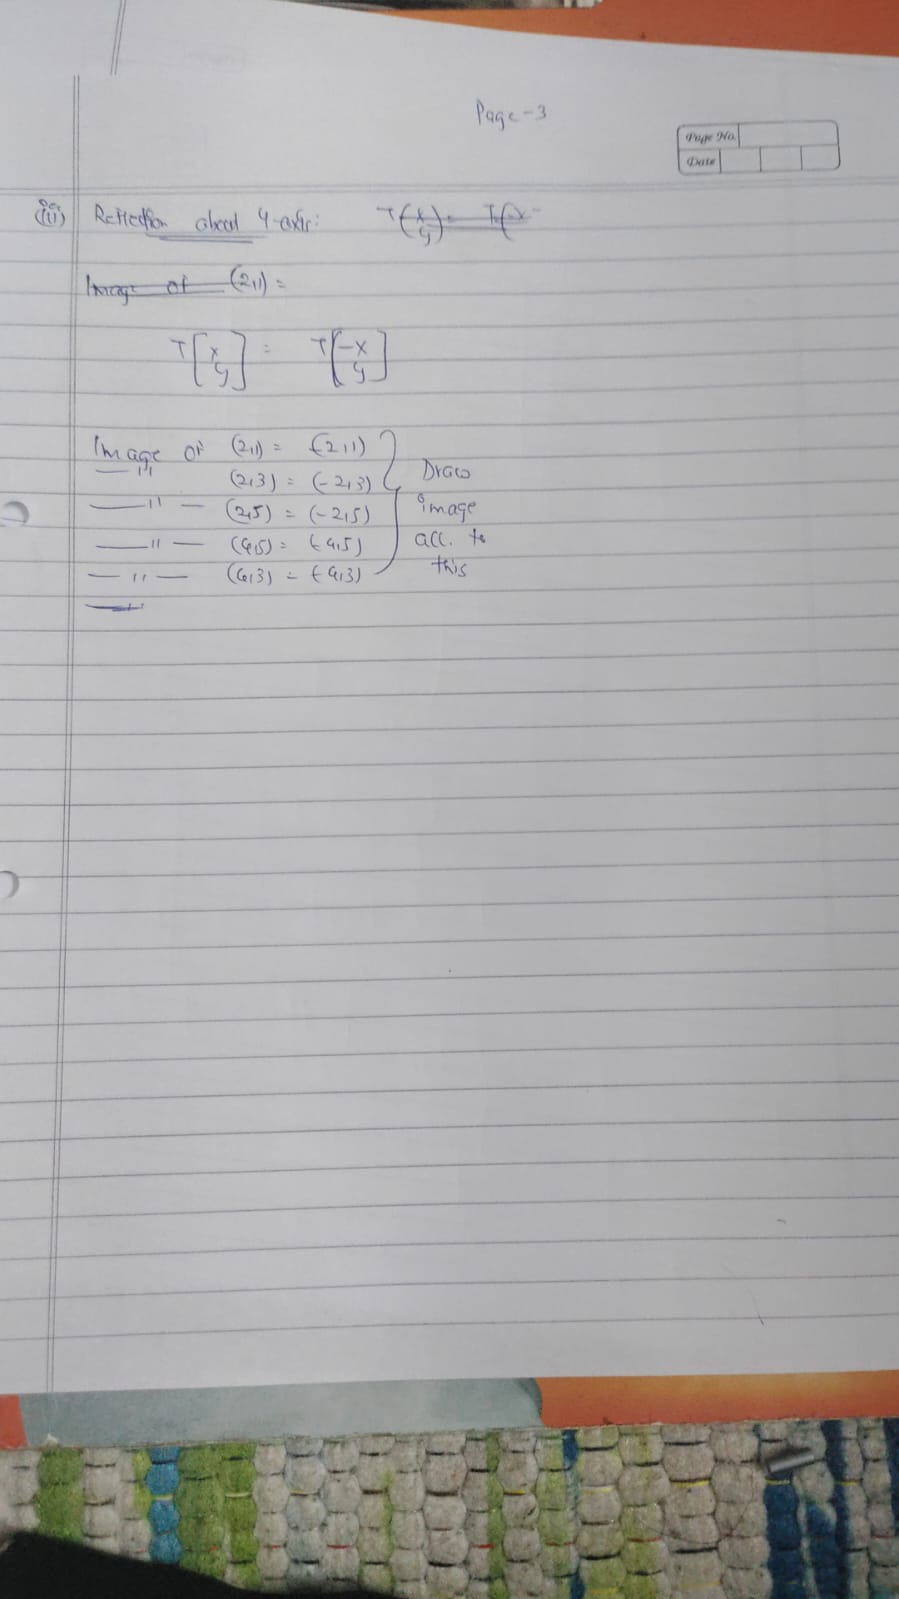 Page-3
Page No.
Date
(iii) Reflection about Y-axis: T(x y) = T(-x
Image of (2,1) =
T[x y] = T[-x y]
Image of (2,1) = (-2,1)
—"— (2,3) = (-2,3)
—"— (2,5) = (-2,5)
—"— (4,5) = (-4,5)
—"— (4,3) = (-4,3)
Draw
image
acc. to
this